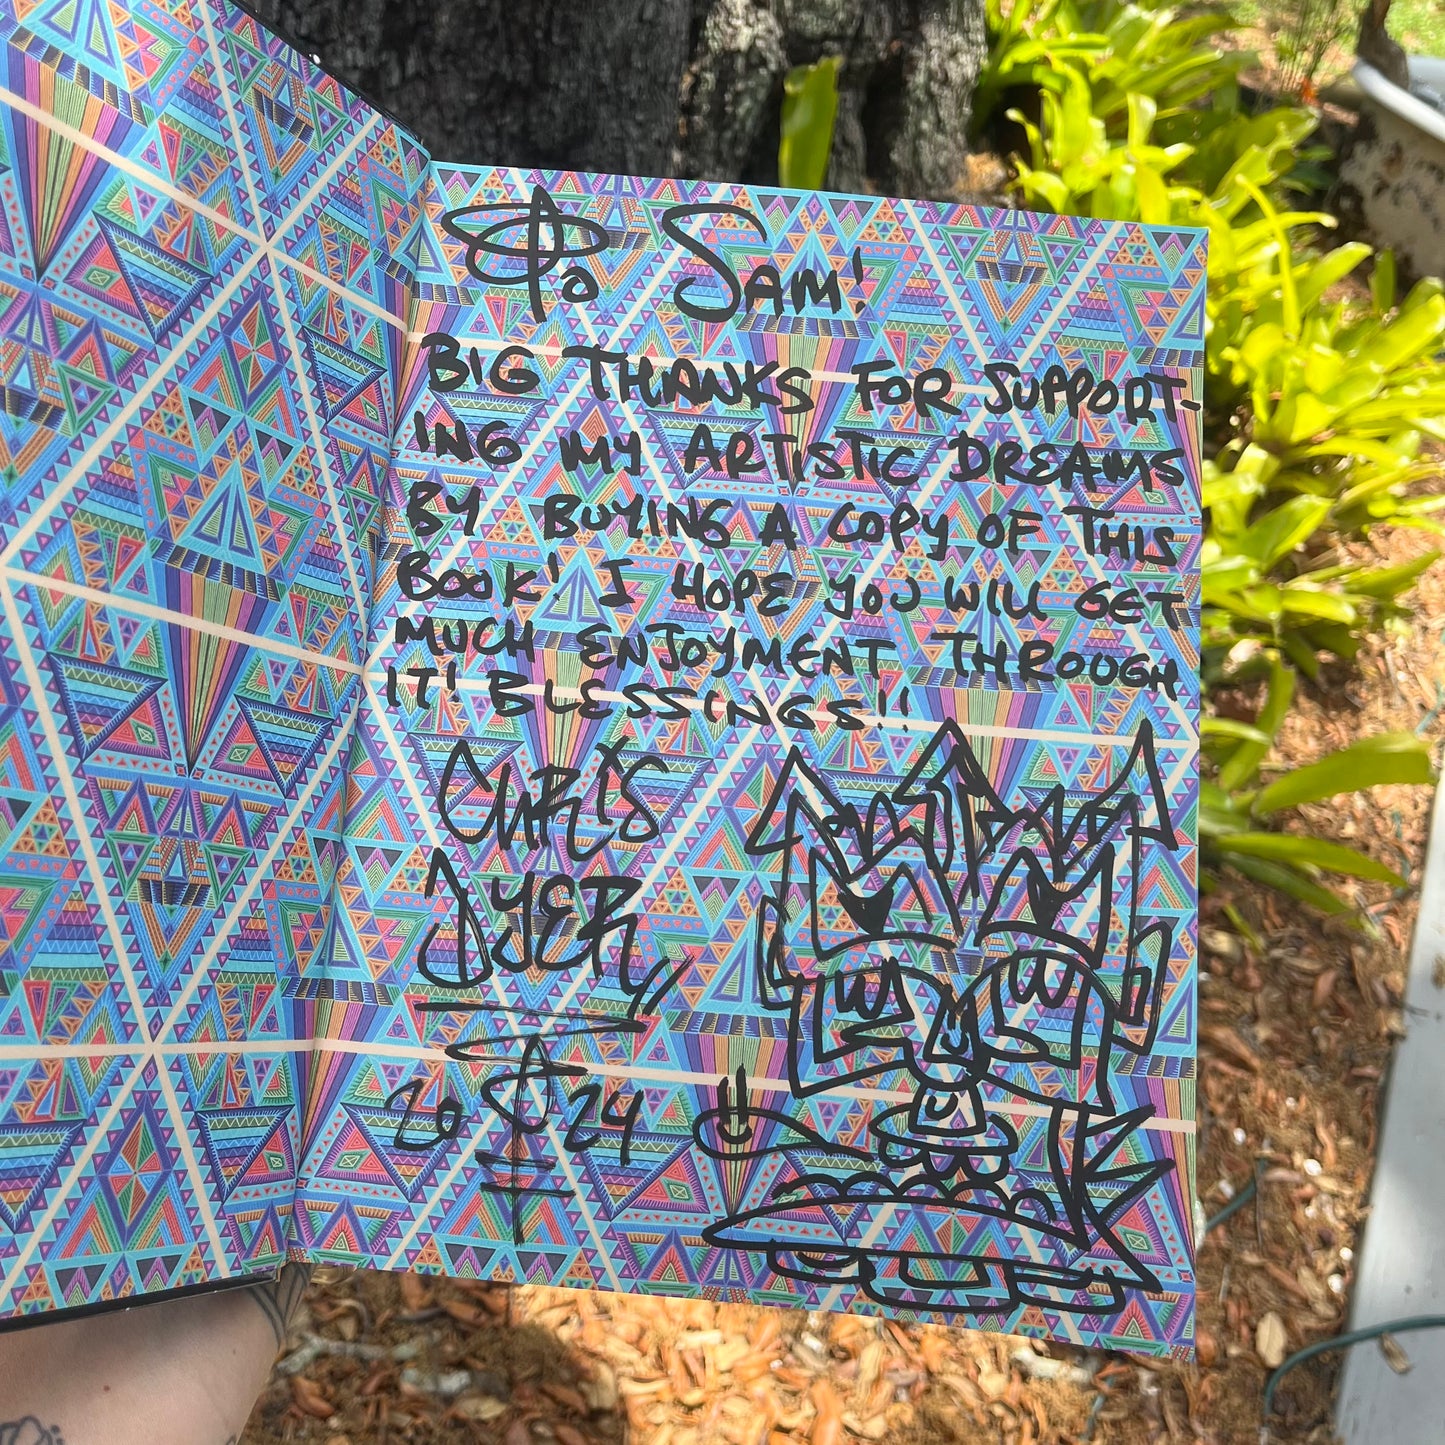 To SAM!
BIG THANKS FOR SUPPORT-
ING MY ARTISTIC DREAMS
BY BUYING A COPY OF THIS
BOOK! I HOPE YOU WILL GET
MUCH ENJOYMENT THROUGH
IT! BLESSINGS!!
CHRIS
DYER
2024